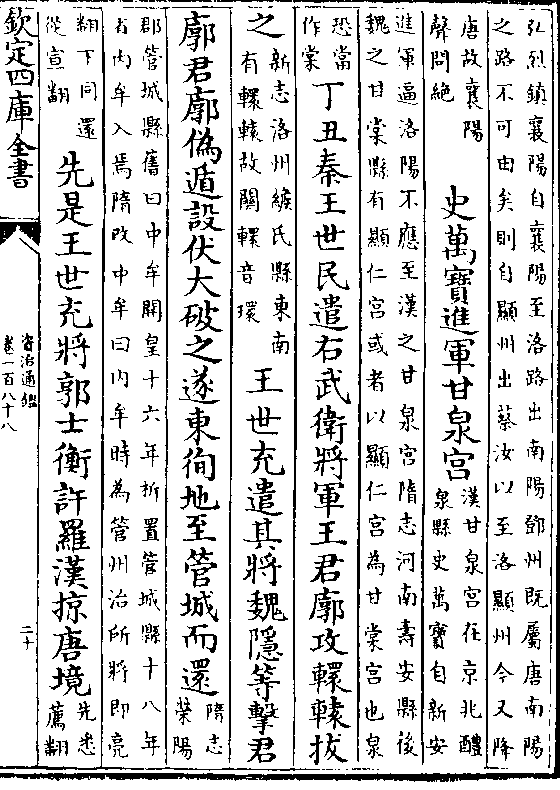 弘烈鎮襄陽自襄陽至洛路出南陽鄧州既屬唐南陽
之路不可由矣則自顯州出蔡汝以至洛顯州今又降
唐故襄陽
聲問絶
史萬寶進軍甘泉宫
漢甘泉宫在京兆醴
泉縣史萬寶自新安
進軍逼洛陽不應至漢之甘泉宫隋志河南壽安縣後
魏之甘棠縣有顯仁宫或者以顯仁宫為甘棠宫也泉
恐當
作棠
丁丑秦王世民遣右武衛將軍王君廓攻轘轅拔
之
新志洛州緱氏縣東南
有轘轅故關轘音環
王世充遣其將魏隱等擊君
廓君廓偽遁設伏大破之遂東徇地至管城而還
隋志
滎陽
郡管城縣舊曰中牟開皇十六年析置管城縣十八年
省内牟入焉隋改中牟曰内牟時為管州治所將即亮
翻下同還
從宣翻
先是王世充將郭士衡許羅漢掠唐境
先悉
薦翻
欽定四庫全書
資治通鑑
卷一百八十八
二十